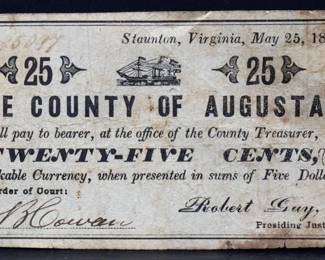 Staunton, Virginia, May 25, 18
25 25
E COUNTY OF AUGUSTA
ll pay to bearer, at the office of the County Treasurer,
TWENTY-FIVE CENTS,
kable Currency, when presented in sums of Five Dolla
rder of Court:
Robert Guy,
Presiding Just